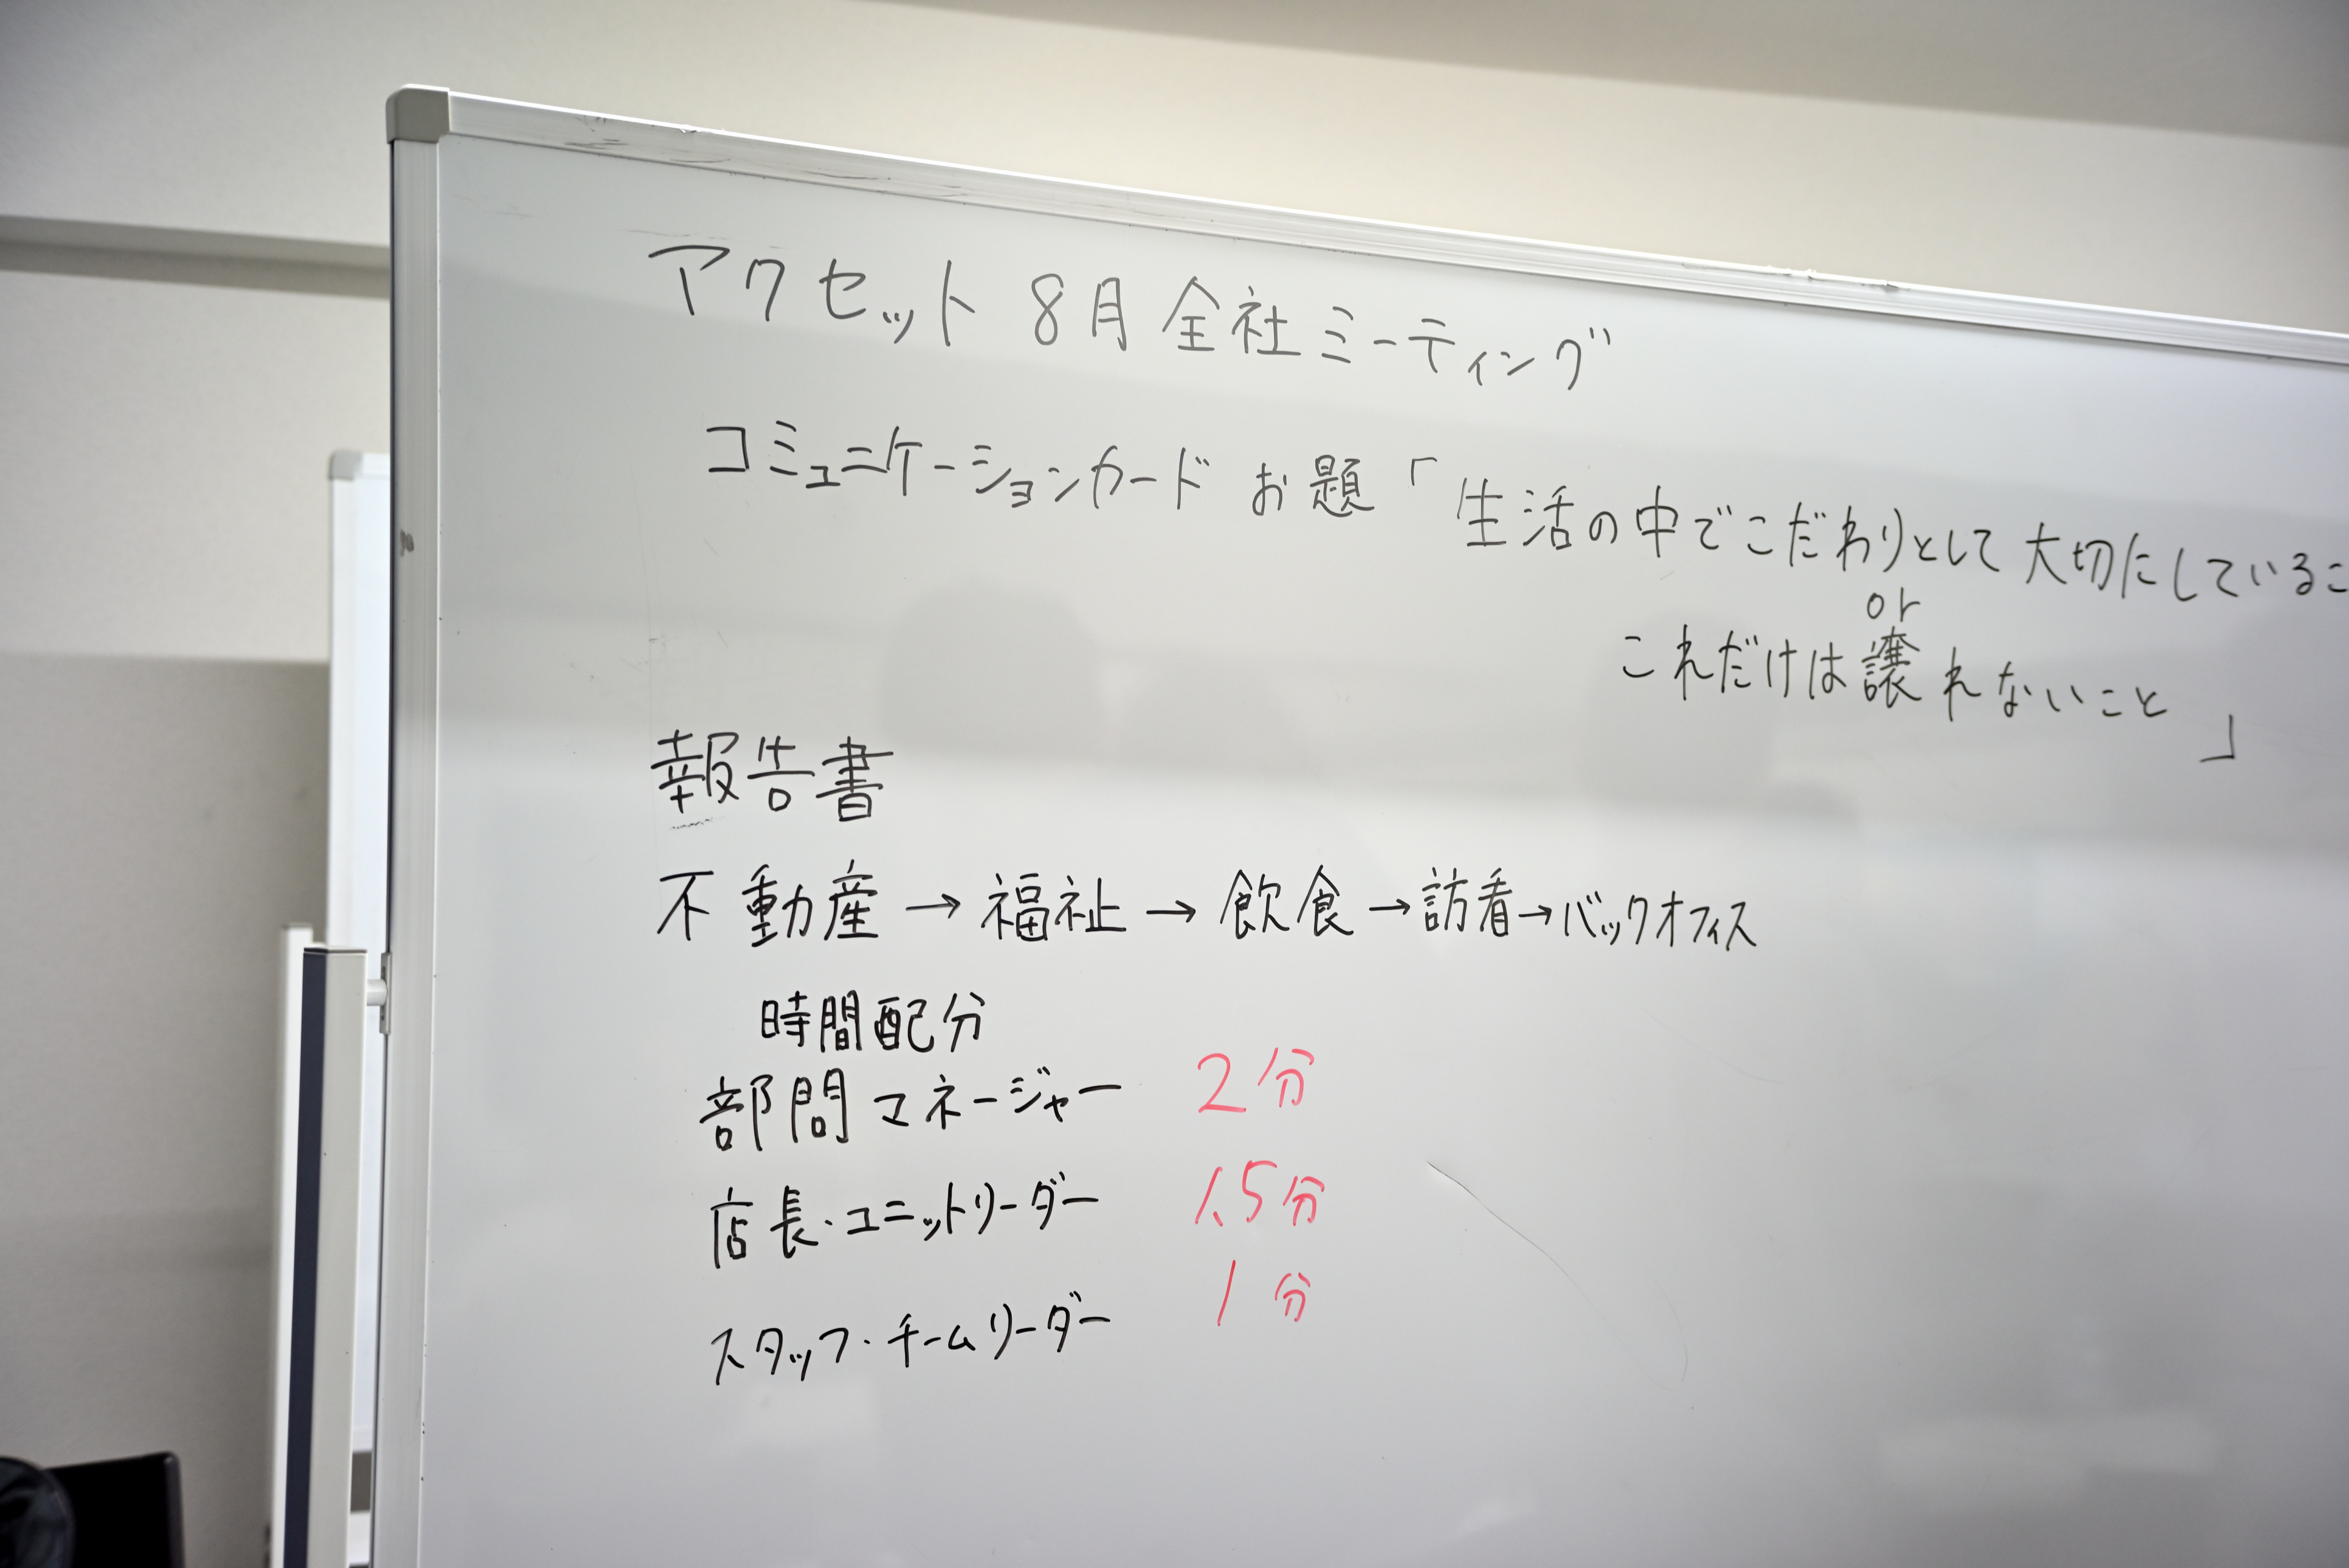 アクセット 8月全社ミーティング
コミュニケーションカード お題「生活の中でこだわりとして大切にしているこ
or
これだけは譲れないこと」
報告書
不動産→福祉→飲食→訪看→バックオフィス
時間配分
部問マネージャー 2分
店長・ユニットリーダー 1.5分
スタッフ・チームリーダー 1分